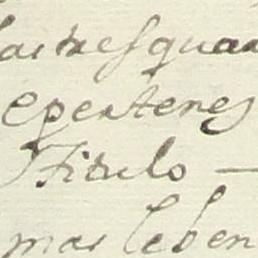 las tres quar
e perten e
Titulo —
mas le ben